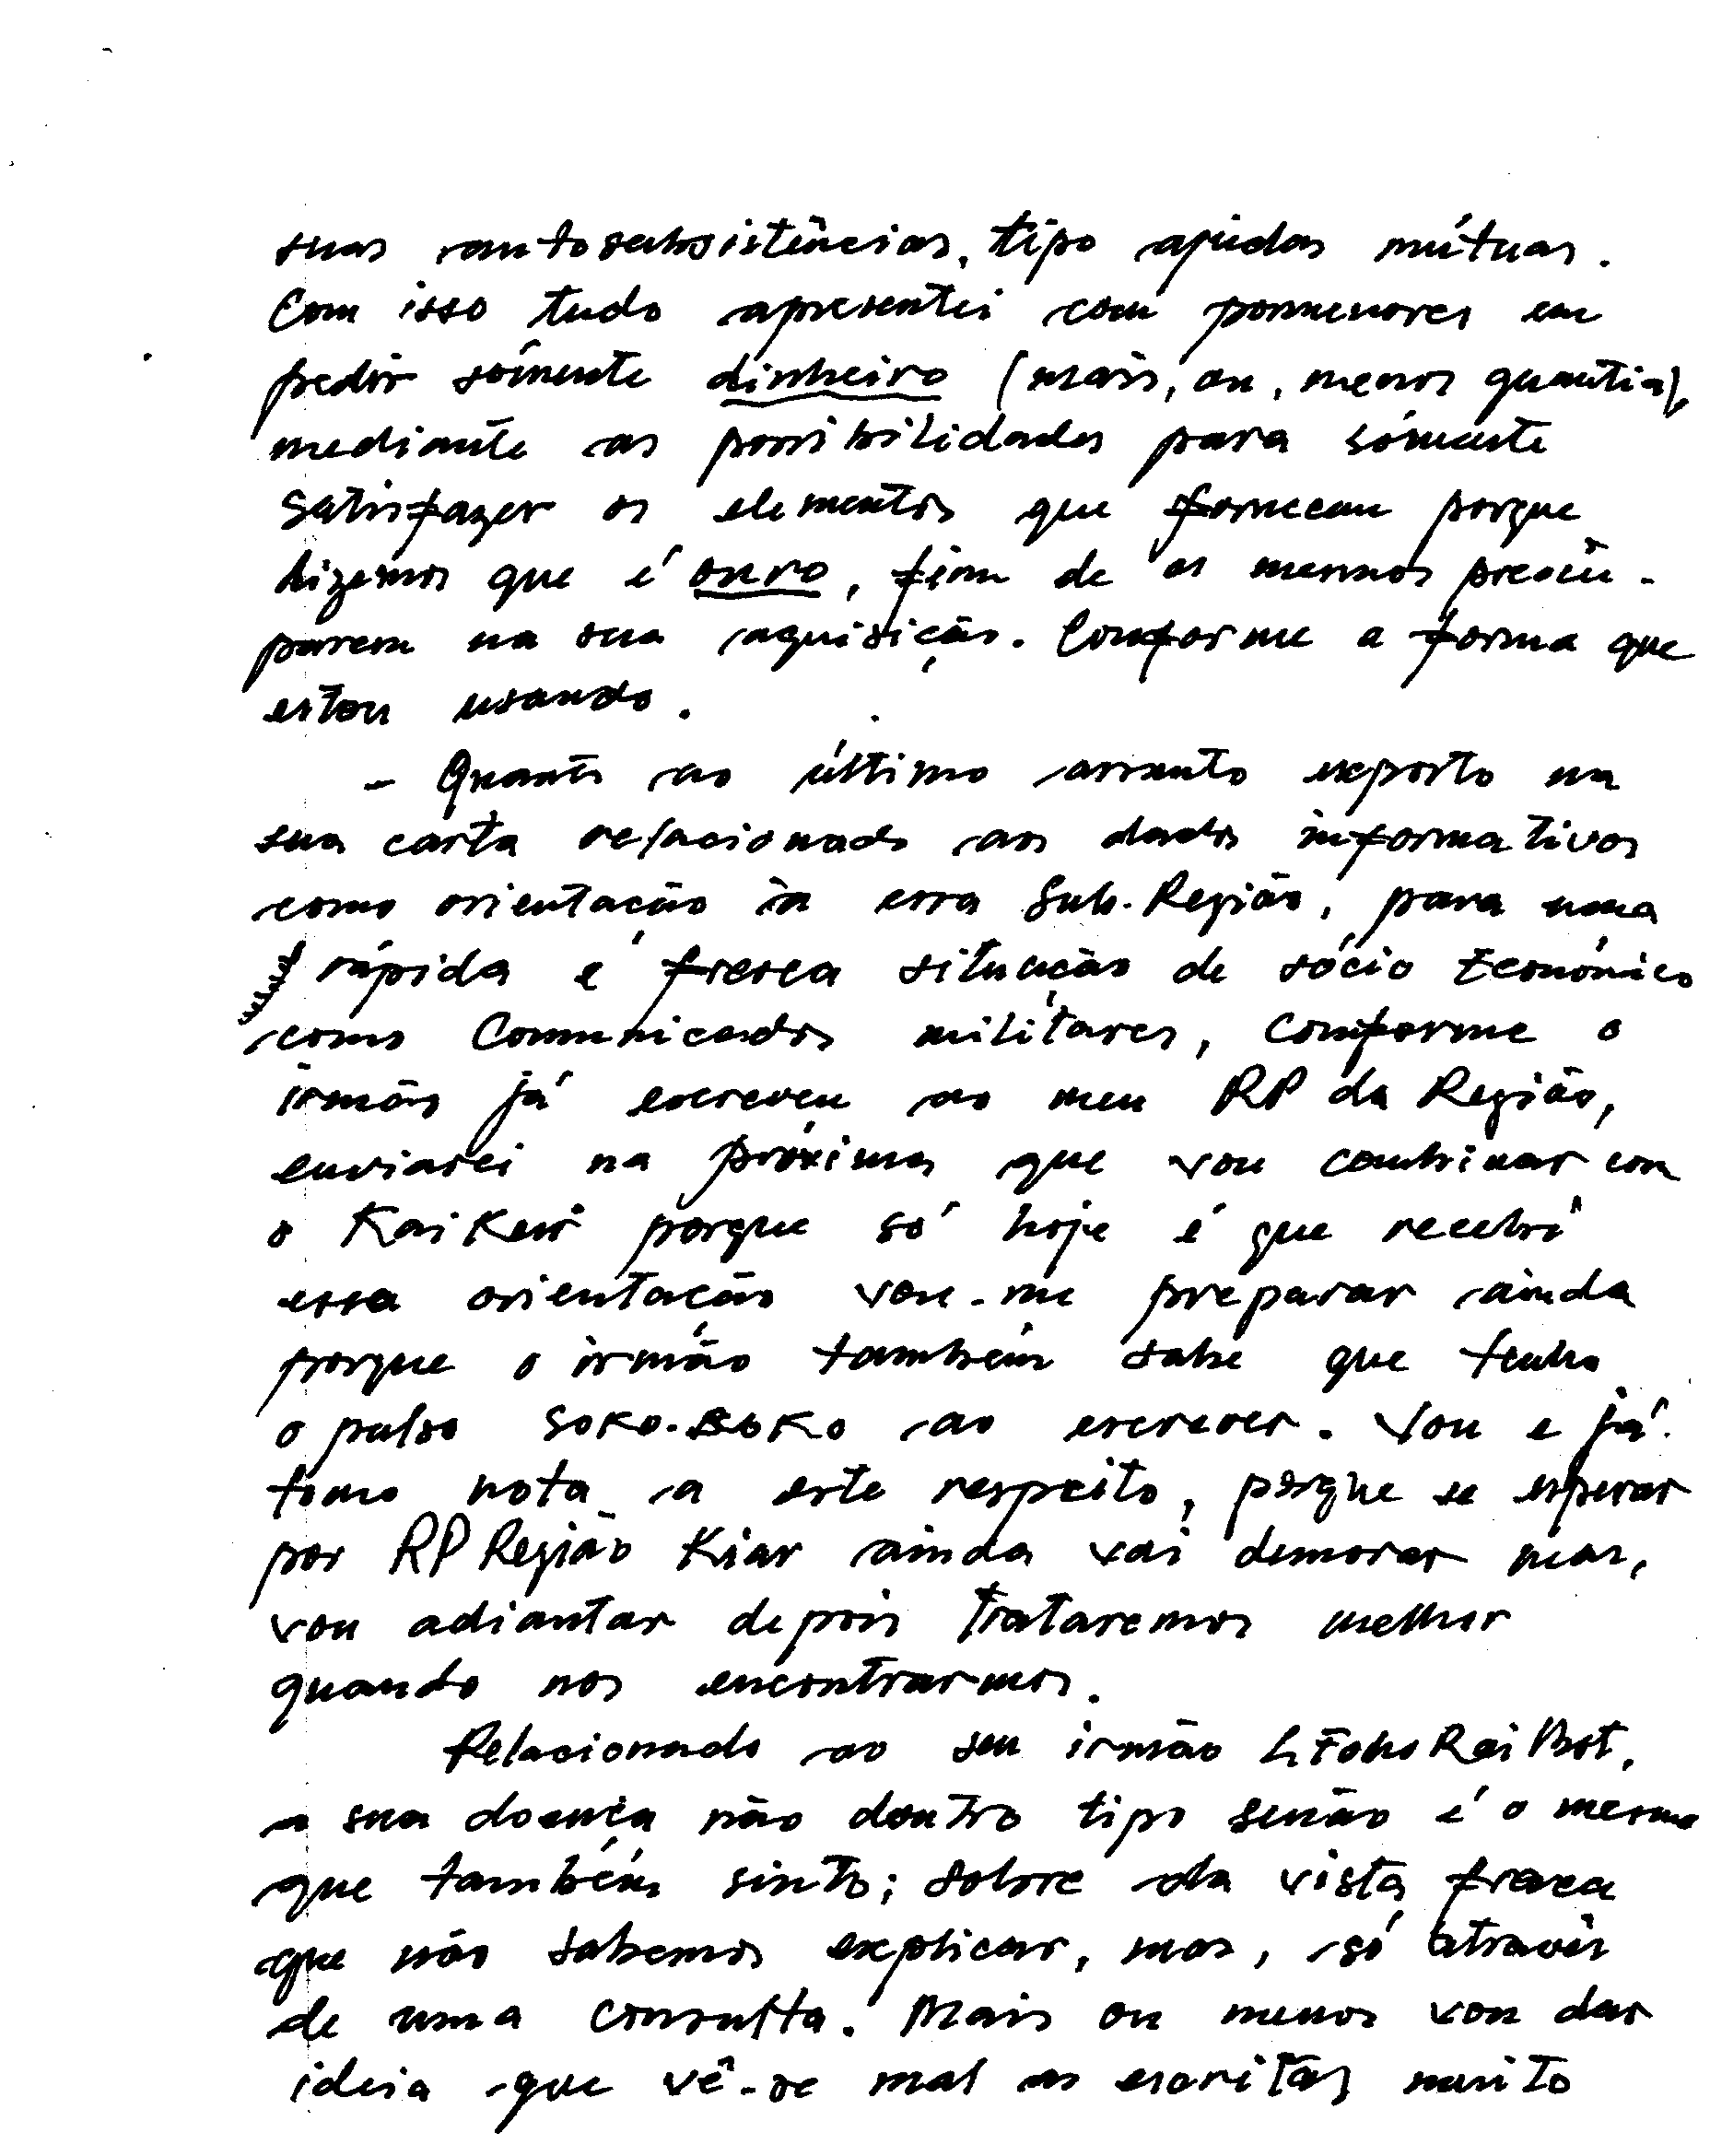 suas autosubsistências, tipo ajudas mútuas.
Com isso tudo apresentei com pormenores em
pedir sómente dinheiro (mais, ou, menos quantia),
mediante as possibilidades para sómente
satisfazer os elementos que fornecem porque
dizemos que é ouro, fim de os mesmos preocu-
parem na sua aquisição. Conforme a forma que
estou usando.
- Quanto ao último assunto exposto na
sua carta relacionado aos dados informativos
como orientação à essa Sub-Região, para uma
rápida e fresca situação de sócio Económico
como Comunicados militares, conforme o
irmão já escreveu ao meu RP da Região,
enviarei na próxima que vou combinar com
o Kai Keri porque só hoje é que recebi
essa orientação vou-me preparar ainda
porque o irmão também sabe que tenho
o pulso soko-soko ao escrever. Vou e já
tomo nota a este respeito, porque se esperar
por RP Região Kiar ainda vai demorar mas,
vou adiantar depois trataremos melhor
quando nos encontrarmos.
Relacionado ao seu irmão Rai Bot,
a sua doença não doutro tipo senão é o mesmo
que também sinto; sobre da vista fraca
que não sabemos explicar, mas, só através
de uma consulta. Mais ou menos vou dar
ideia que vê-se mal as escritas muito